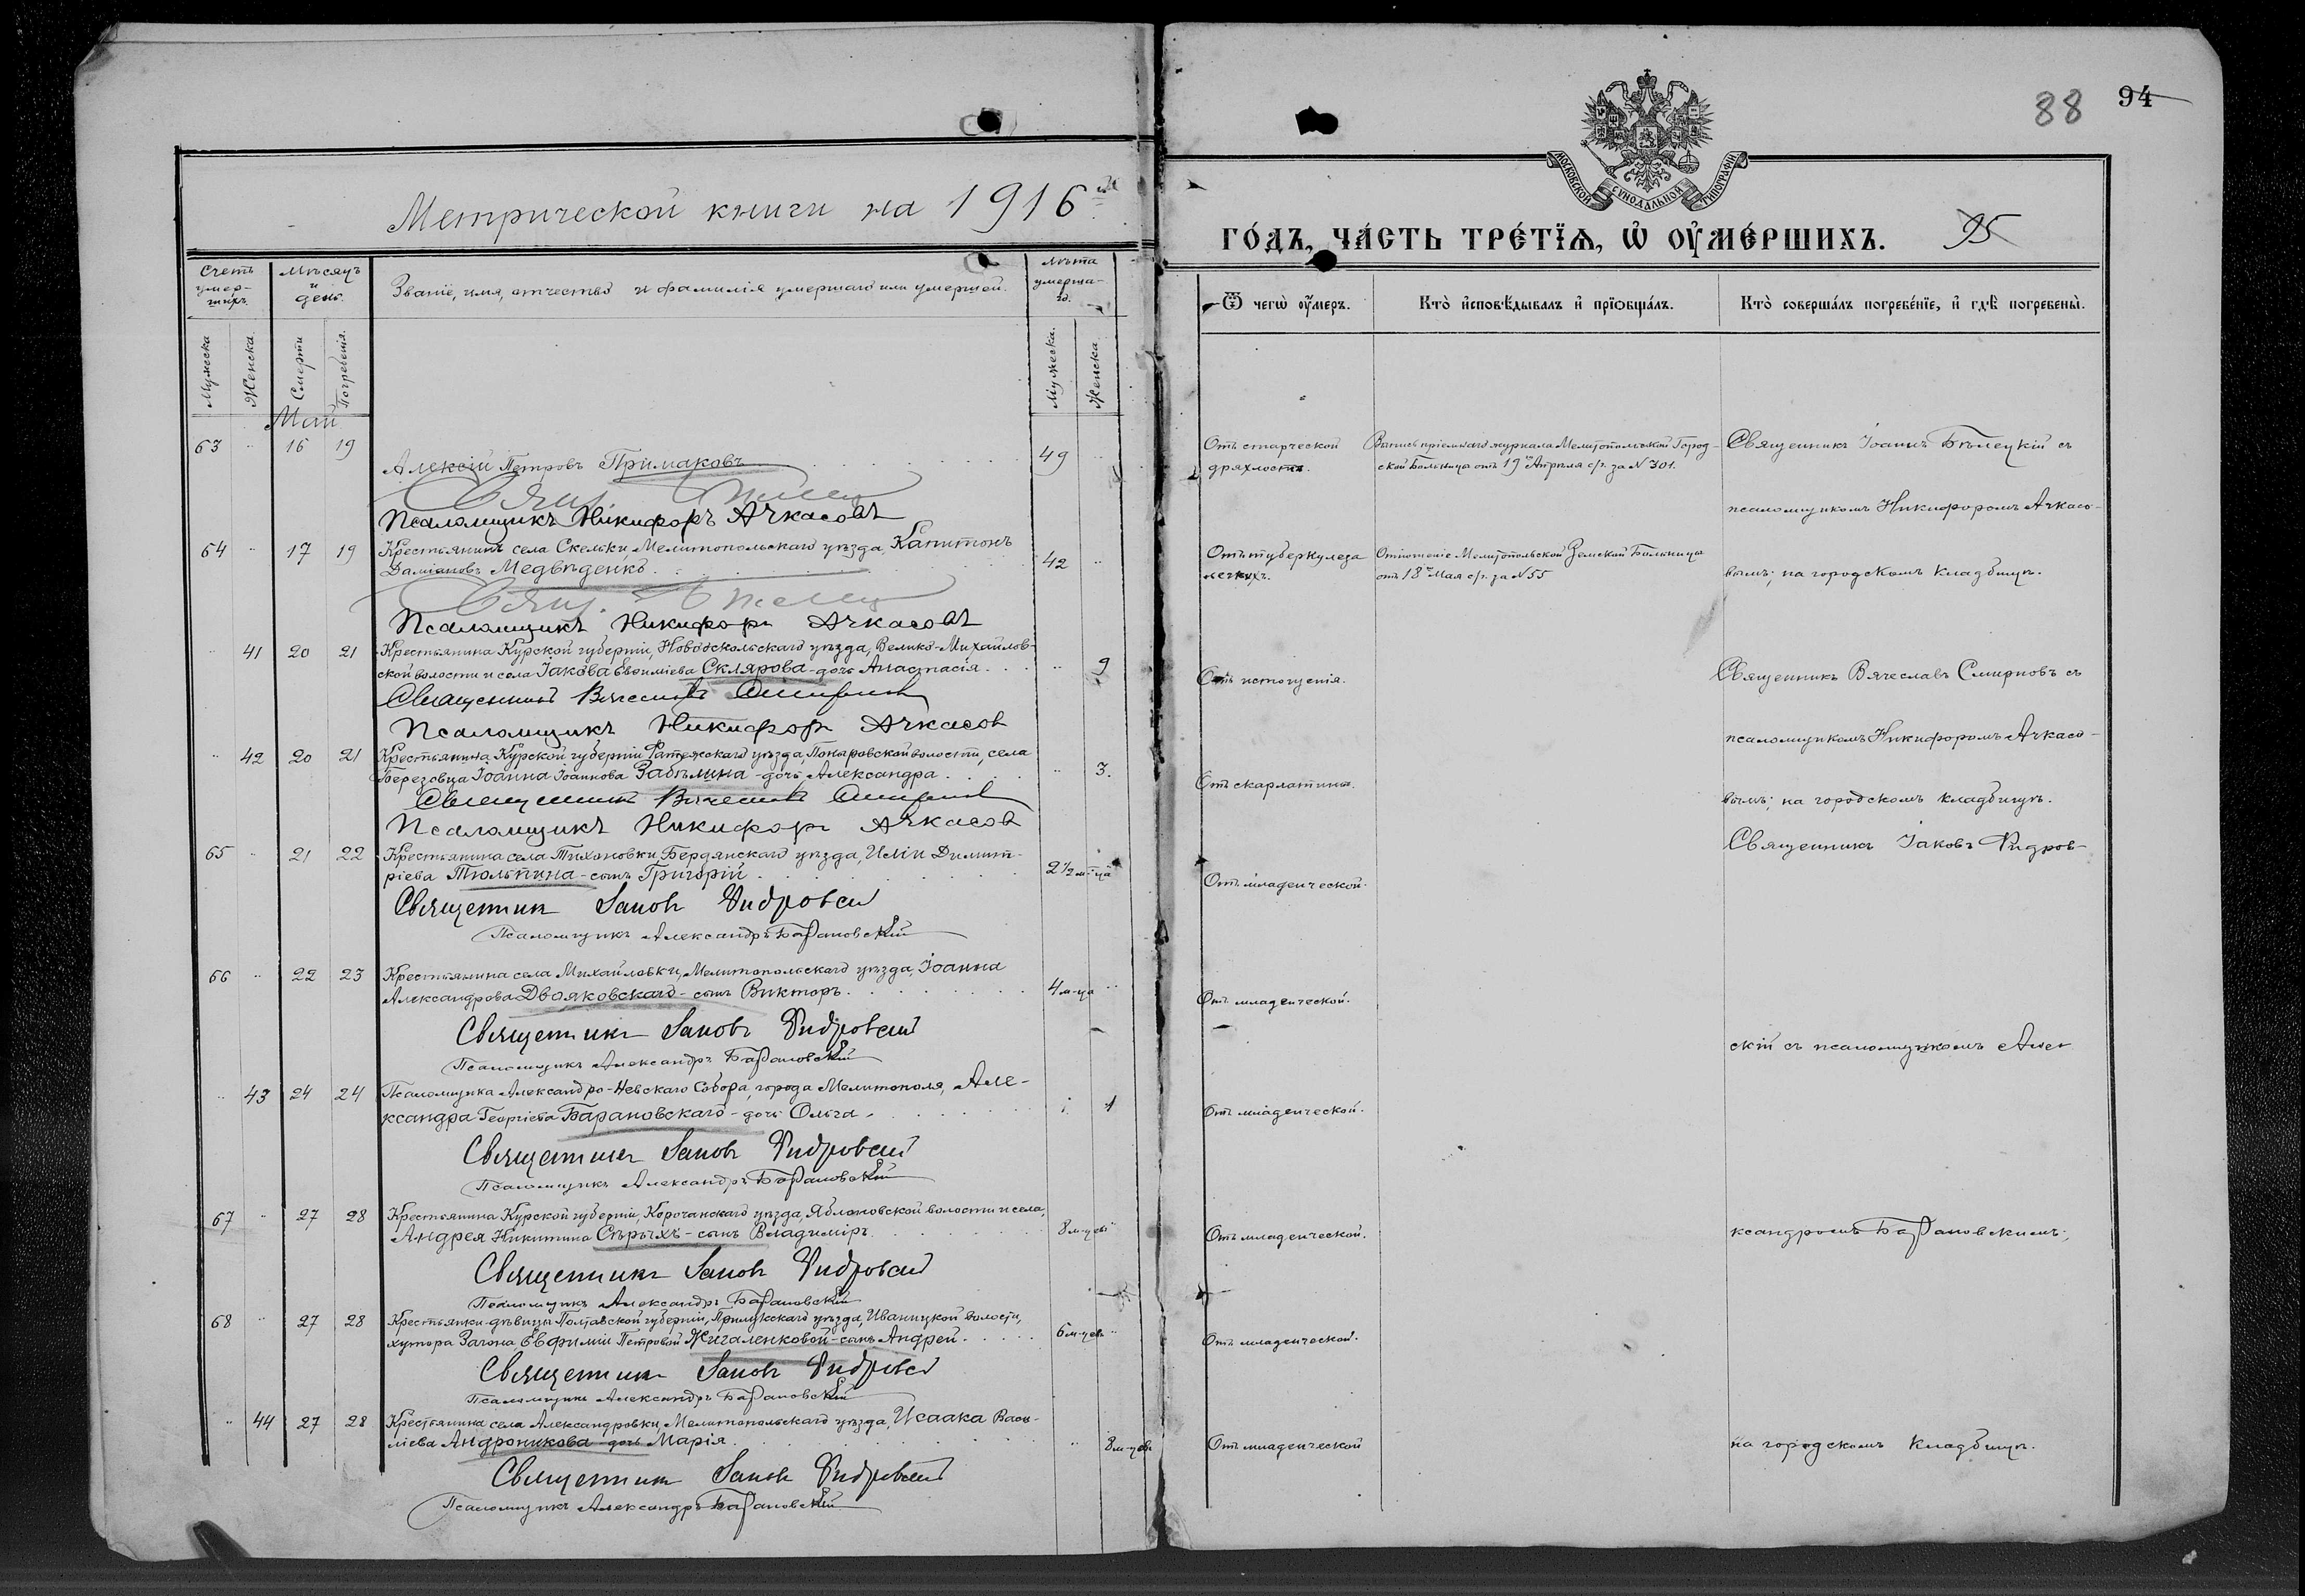 Метрической книги на 1916 й
88 94
МОСКОВСКОЙ СѴНОДАЛЬНОЙ ТИПОГРАФІИ
ГО́ДЪ, ЧА́СТЬ ТРЕ́ТЇѦ, Ѡ҆ ОУ҆МЕ́РШИХЪ. 95
Счетъ умер-шихъ. Мѣсяцъ и день. Званіе, имя, отчество и фамилія умершаго или умершей. Лѣта умерша-го.
Ѿ чегѡ̀ оу҆́меръ. Кто̀ и҆сповѣ́дывалъ и҆ прїѡбща́лъ. Кто̀ соверша́лъ погребе́нїе, и҆ гдѣ̀ погребены̀.
Мужеска Женска. Смерти Погребенія. Мужеска. Женска
Май
63 " 16 19 Алексій Петровъ Примаковъ 49 "
Отъ старческой дряхлости.
Выпись пріемнаго журнала Мелитопольской Город-
ской Больницы отъ 19го Апрѣля с/г. за № 301.
Священникъ Іоаннъ Бѣлецкій съ
Псаломщикъ Никифоръ Ачкасовъ
псаломщикомъ Никифоромъ Ачкасо-
64 " 17 19 Крестьянинъ села Скельки, Мелитопольскаго уѣзда, Капитонъ
Даміановъ Медвѣденко. 42 "
Отъ туберкулеза легкихъ.
Отношеніе Мелитопольской Земской Больницы
отъ 18го Мая с/г. за № 55
вымъ; на городскомъ кладбищѣ.
Псаломщикъ Никифоръ Ачкасовъ
" 41 20 21 Крестьянина Курской губерніи, Новооскольскаго уѣзда, Велико-Михайлов-
ской волости и села Іакова Евѳиміева Склярова - дочь Анастасія. " 9
Отъ истощенія.
Священникъ Вячеславъ Смирновъ съ
Священникъ Вячеславъ Смирновъ
Псаломщикъ Никифоръ Ачкасов
псаломщикомъ Никифоромъ Ачкасо-
" 42 20 21 Крестьянина Курской губерніи Фатежскаго уѣзда, Поныровской волости, села
Березовца Іоанна Іоаннова Забѣлина - дочь Александра. " 3.
Отъ скарлатины.
вымъ; на городскомъ кладбищѣ.
Священникъ Вячеславъ Смирновъ
Псаломщикъ Никифоръ Ачкасов
65 " 21 22 Крестьянина села Тихоновки, Бердянскаго уѣзда, Иліи Димит-
ріева Тюльпина - сынъ Григорій. 2½ м-ца
Отъ младенческой.
Священникъ Іаковъ Видров-
Священник Іаковъ Видровскій
Псаломщикъ Александръ Барановскій
66 " 22 23 Крестьянина села Михайловки, Мелитопольскаго уѣзда, Іоанна
Александрова Двояковскаго - сынъ Викторъ. 4 м-ца "
Отъ младенческой.
Священникъ Іаковъ Видровскій
Псаломщикъ Александръ Барановскій
скій съ псаломщикомъ Але-
" 43 24 24 Псаломщика Александро-Невскаго Собора, города Мелитополя, Але-
ксандра Георгіева Барановскаго - дочь Ольга. 1
Отъ младенческой.
Священникъ Іаковъ Видровскій
Псаломщикъ Александръ Барановскій
67 " 27 28 Крестьянина Курской губерніи, Корочанскаго уѣзда, Яблоновской волости и села,
Андрея Никитина Сѣрыхъ - сынъ Владиміръ. 8 м-цевъ
Отъ младенческой.
ксандромъ Барановскимъ;
Священникъ Іаковъ Видровскій
Псаломщикъ Александръ Барановскій
68 " 27 28 Крестьянки-дѣвицы Полтавской губерніи, Прилукскаго уѣзда, Иваницкой волости,
хутора Загона Евфиміи Петровой Жигаленковой - сынъ Андрей. 6 м-цевъ "
Отъ младенческой.
Священникъ Іаковъ Видровскій
Псаломщикъ Александръ Барановскій
" 44 27 28 Крестьянина села Александровки, Мелитопольскаго уѣзда, Исаака Васи-
ліева Андроникова - дочь Марія. " 8 м-цевъ
Отъ младенческой
на городскомъ кладбищѣ.
Священникъ Іаковъ Видровскій
Псаломщикъ Александръ Барановскій